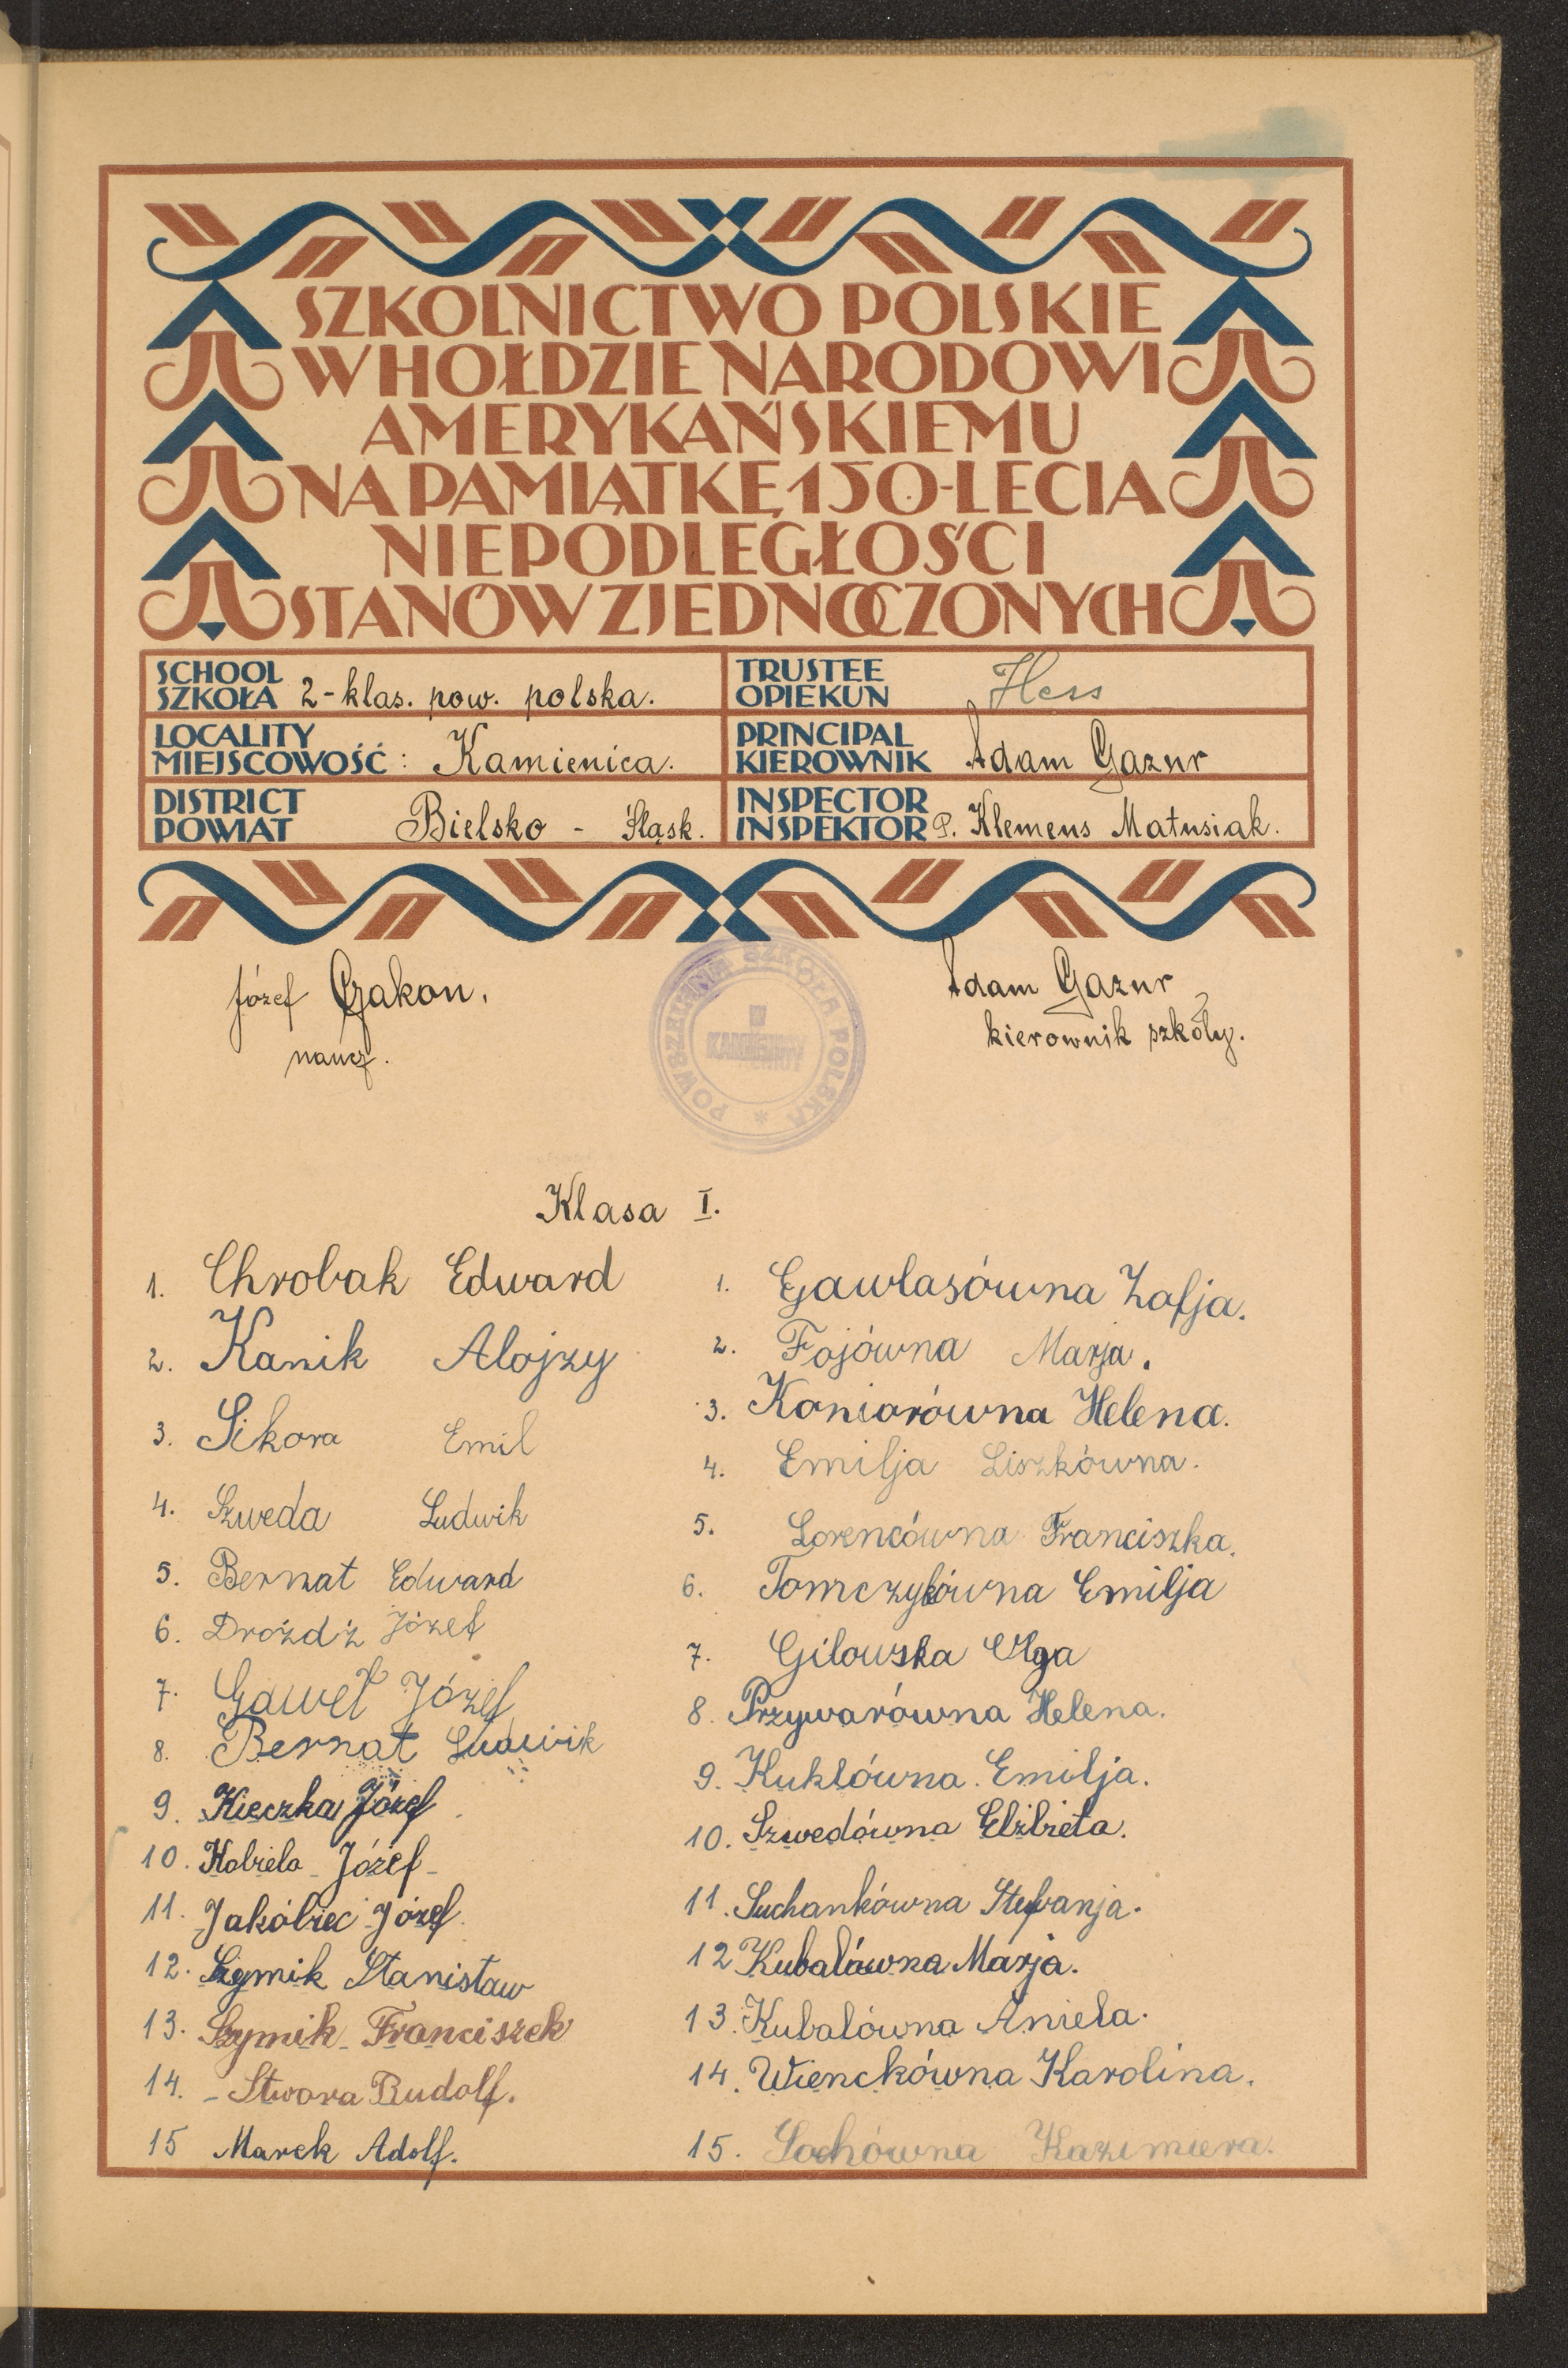 SZKOLNICTWO POLSKIE
W HOŁDZIE NARODOWI
AMERYKAŃSKIEMU
NA PAMIĄTKĘ 150-LECIA
NIEPODLEGŁOŚCI
STANÓW ZJEDNOCZONYCH
SCHOOL
SZKOŁA 2-klas. pow. polska.
TRUSTEE
OPIEKUN Hess
LOCALITY
MIEJSCOWOŚĆ : Kamienica.
PRINCIPAL
KIEROWNIK Adam Gazur
DISTRICT
POWIAT Bielsko - Śląsk.
INSPECTOR
INSPEKTOR P. Klemens Matusiak.
Józef Gakon.
naucz.
POWSZECHNA SZKOŁA POLSKA
W
Adam Gazur
kierownik szkoły.
Klasa I.
1. Chrobak Edward
2. Kanik Alojzy
3. Sikora Emil
4. Szweda Ludwik
5. Bernat Edward
6. Drożdż Józef
7. Gaweł Józef
8. Bernat Ludwik
9. Kieczka Józef
10. Kobiela Józef
11. Jakóbiec Józef
12. Szymik Stanisław
13. Szymik Franciszek
14. - Stwora Rudolf.
15 Marek Adolf.
1. Gawlasówna Zofja.
2. Fojówna Marja.
3. Koniorówna Helena.
4. Emilja Liszkówna.
5. Lorencówna Franciszka.
6. Tomczykówna Emilja
7. Gilowska Olga
8. Przywarówna Helena.
9. Kuklówna Emilja.
10. Szwedówna Elżbieta.
11. Suchankówna Stefanja.
12 Kubalówna Marja.
13. Kubalówna Aniela.
14. Wienckówna Karolina.
15. Sochówna Kazimiera.